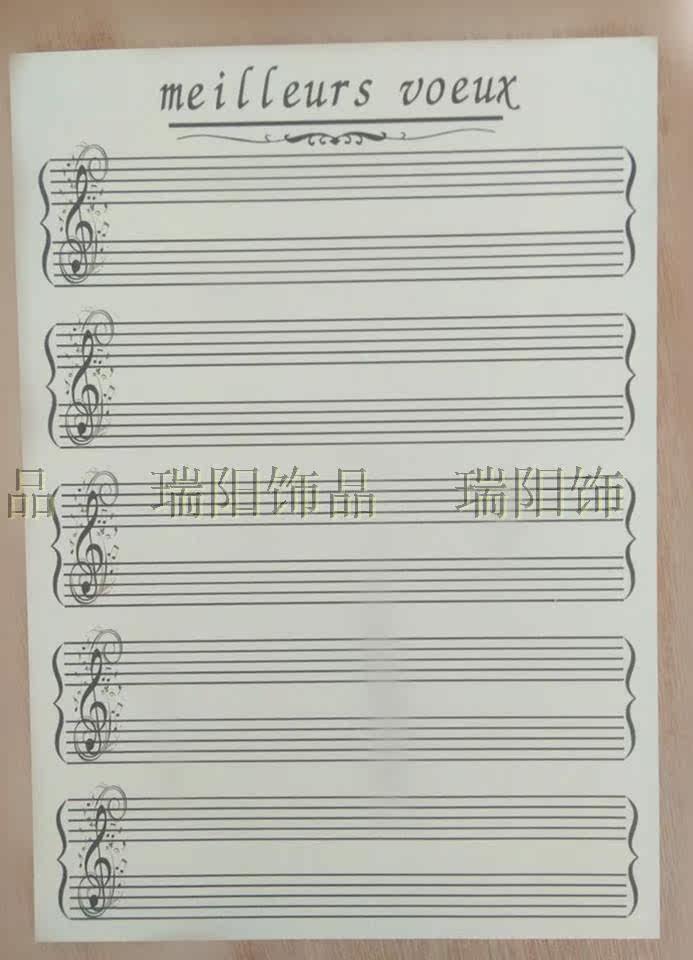 meilleurs voeux
品 瑞阳饰品 瑞阳饰